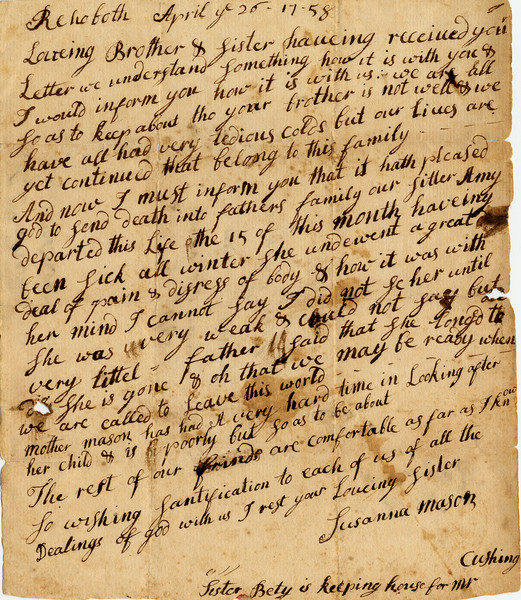 Rehoboth April ye 26 - 17-58
Loveing Brother & Sister haveing received your
Letter we understand something how it is with you &
I would inform you how it is with us: we are all
so as to keep about tho your brother is not well & we
have all had very tedious colds but our Lives are
yet continued that belong to this family
And now I must inform you that it hath pleased
god to send death into fathers family our sister Amy
departed this Life the 15 of this month haveing
been sick all winter she underwent a great
deal of pain & disress of body & how it was with
her mind I cannot say I did not se her until
she was very weak & could not say but
very littel father said that she longd to
die she is gone & oh that we may be ready when
we are called to Leave this world
mother mason has had a very hard time in Looking after
her child & is poorly but so as to be about
The rest of our frinds are comfortable as far as I know
so wishing santification to each of us of all the
Dealings of god with us I rest your Loveing sister
Susanna mason
Cushing
Sister Bety is keeping house for mr